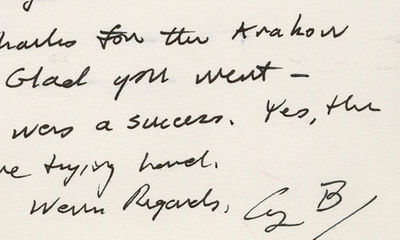 Thanks for the Krakow
Glad you went –
was a success. Yes, the
re trying hard.
Warm Regards, Cy B